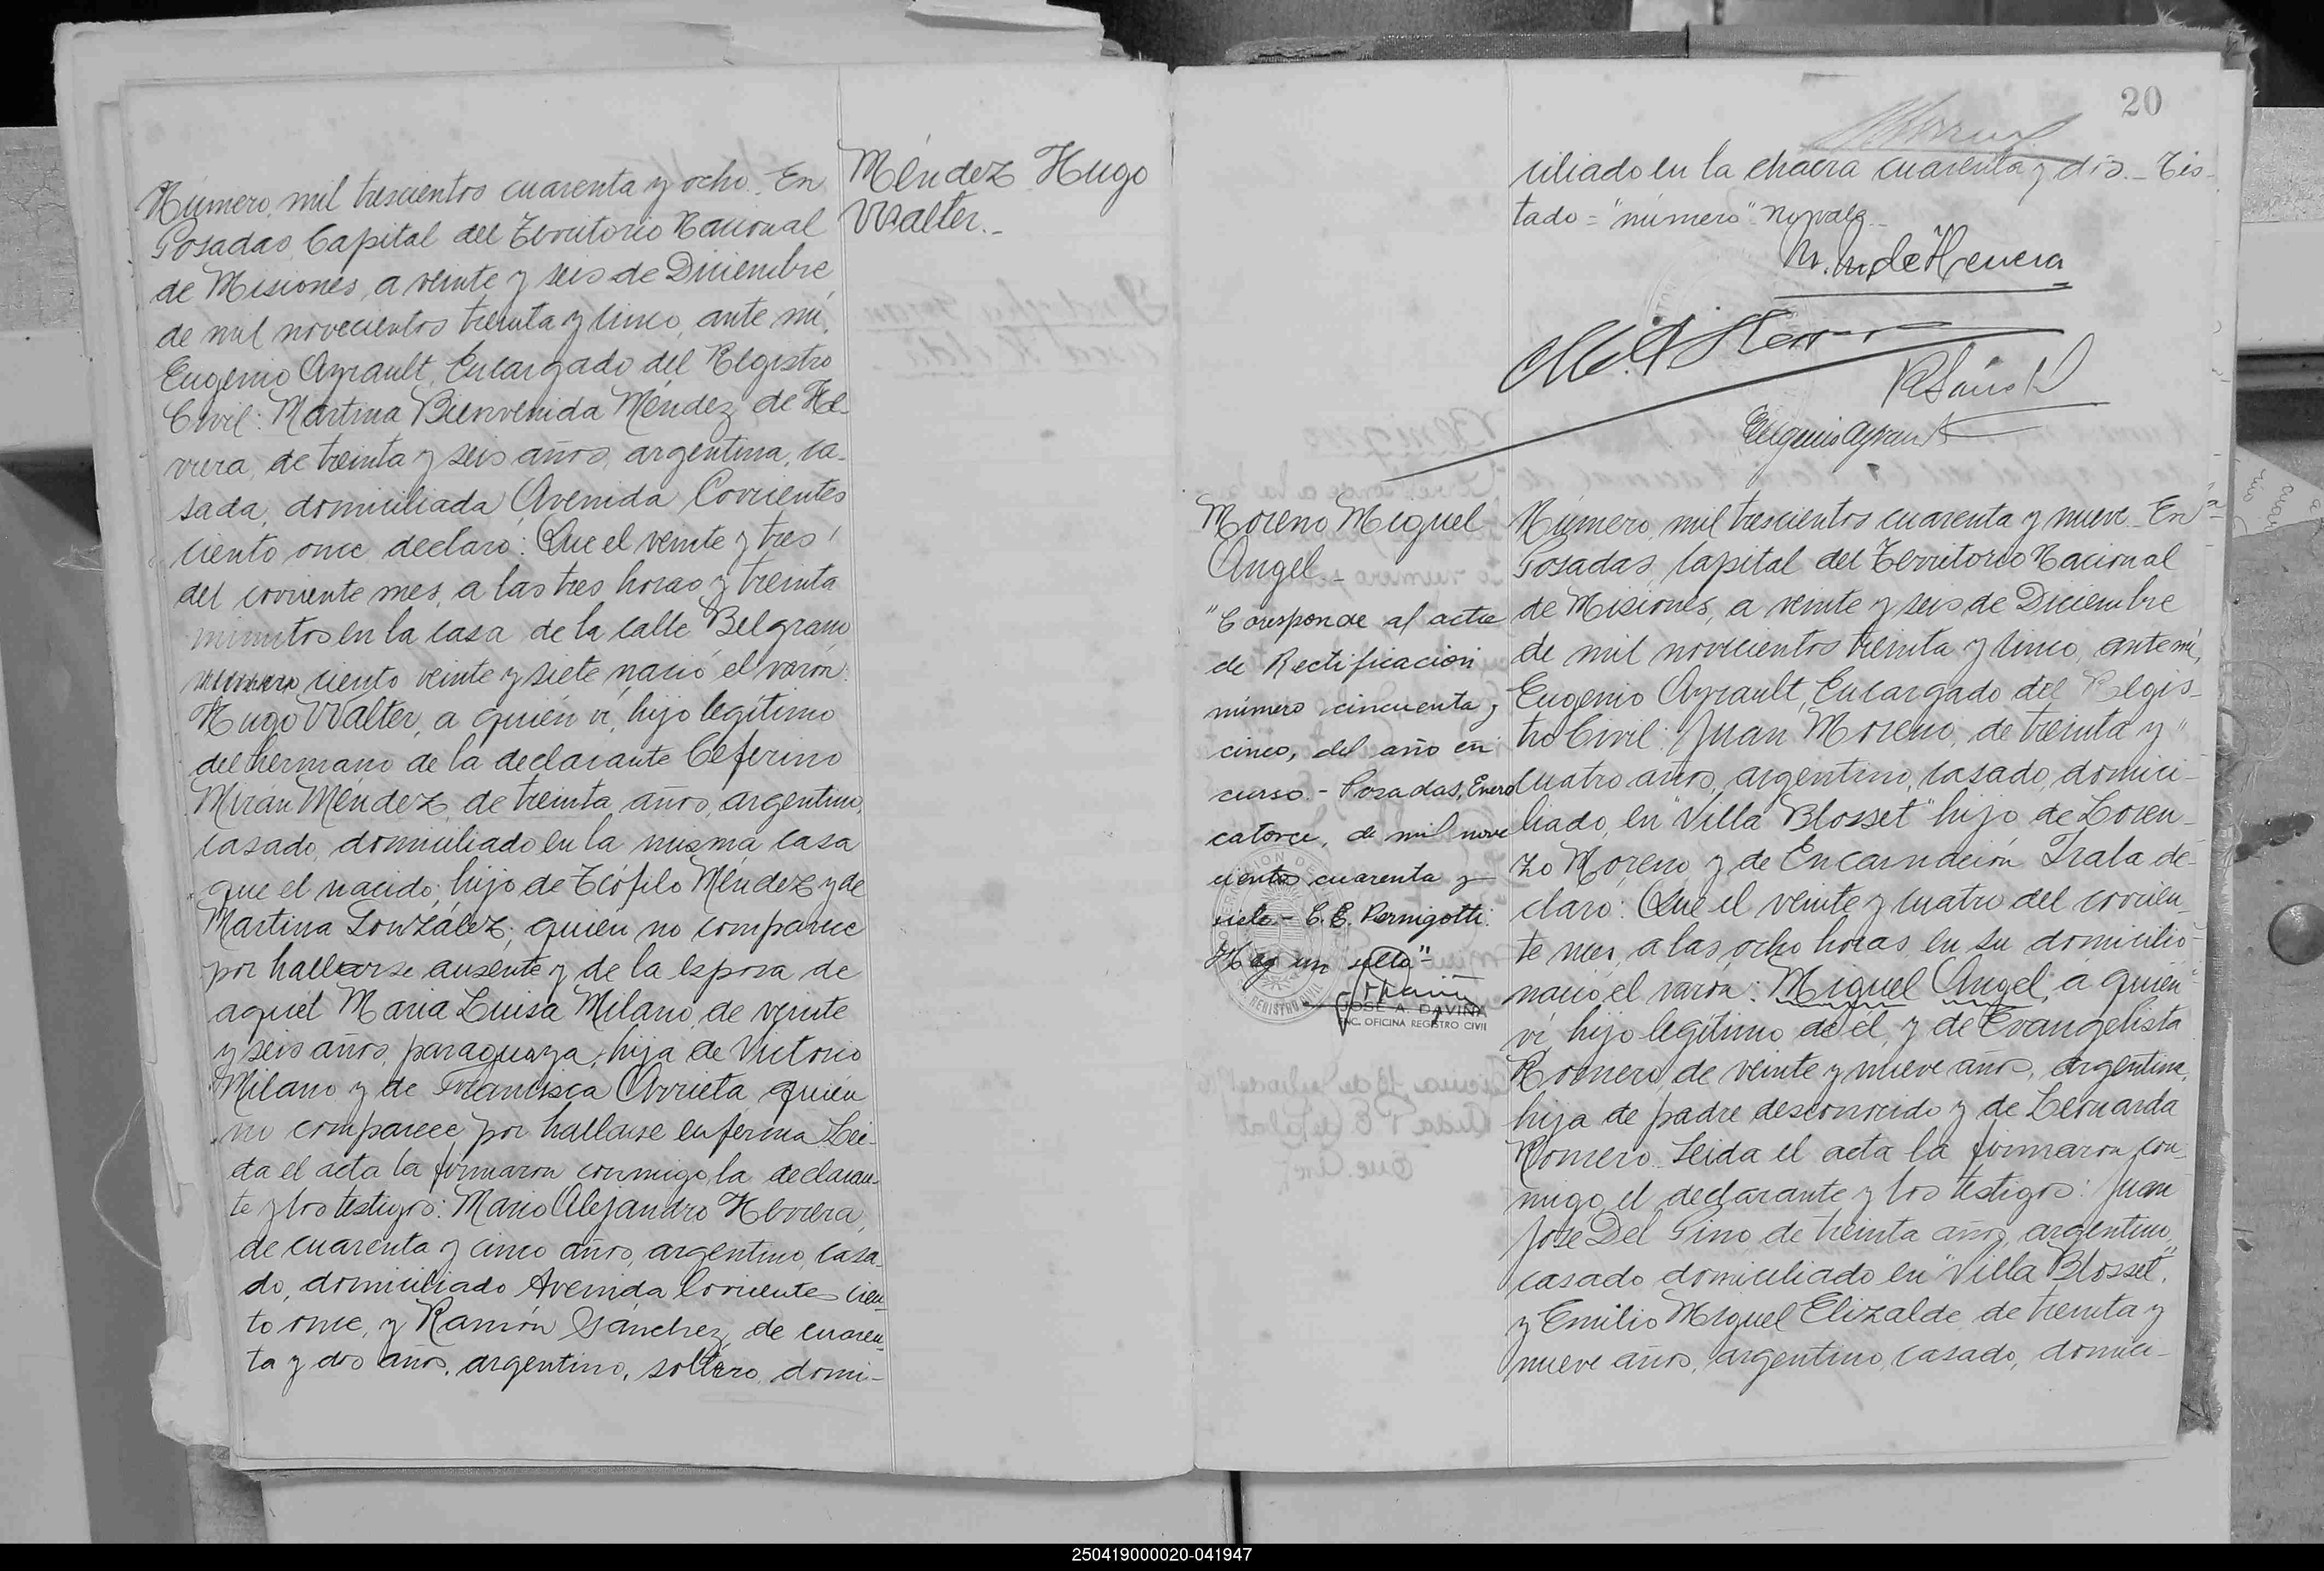 Número mil trescientos cuarenta y ocho. En
Posadas, Capital del Territorio Nacional
de Misiones, a veinte y seis de Diciembre
de mil novecientos treinta y cinco, ante mí,
Eugenio Ayrault, Encargado del Registro
Civil: Martina Bienvenida Méndez de He-
rrera, de treinta y seis años, argentina, ca-
sada, domiciliada Avenida Corrientes
ciento once, declaró: Que el veinte y tres
del corriente mes, a las tres horas y treinta
minutos en la casa de la calle Belgrano
número ciento veinte y siete nació el varón:
Hugo Walter, a quién ví, hijo legítimo
del hermano de la declarante Ceferino
Mirán Méndez, de treinta años, argentino,
casado, domiciliado en la misma casa
que el nacido; hijo de Teófilo Méndez y de
Martina González; quién no comparece
por hallarse ausente y de la esposa de
aquél María Luisa Milano, de veinte
y seis años, paraguaya; hija de Victorio
Milano y de Francisca Arrieta, quién
no comparece por hallarse enferma. Leí-
da el acta la firmaron conmigo, la declaran-
te y los testigos: Mario Alejandro Herrera,
de cuarenta y cinco años, argentino, casa-
do, domiciliado Avenida Corrientes cien-
to once, y Ramón Sánchez, de cuaren-
ta y dos años, argentino, soltero, domi-
Méndez Hugo
Walter.-
20
ciliado en la chacra cuarenta y dos.- Tes-
tado = "número" no vale.-
M. M. de Herrera
M. A. Herrera
R Sánchez
Eugenio Ayrault
Moreno Miguel
Angel.-
"Corresponde al acta
de Rectificación
número cincuenta y
cinco, del año en
curso.- Posadas, Enero
catorce, de mil nove
cientos cuarenta y
siete.- E. E. Pernigotti.
Hay un sello"-
JOSÉ A. DAVIÑA
ENC. OFICINA REGISTRO CIVIL
Número mil trescientos cuarenta y nueve. En
Posadas, Capital del Territorio Nacional
de Misiones, a veinte y seis de Diciembre
de mil novecientos treinta y cinco, ante mí,
Eugenio Ayrault, Encargado del Regis-
tro Civil: Juan Moreno, de treinta y
cuatro años, argentino, casado, domici-
liado, en "Villa Blosset" hijo de Loren-
zo Moreno y de Encarnación Trala de-
claró: Que el veinte y cuatro del corrien-
te mes, a las ocho horas, en su domicilio
nació el varón: Miguel Angel, a quién
ví, hijo legítimo de él, y de Evangelista
Romero, de veinte y nueve años, argentina,
hija de padre desconocido y de Leonarda
Romero. Leída el acta la firmaron con-
migo, el declarante y los testigos: Juan
José Del Pino, de treinta años, argentino,
casado domiciliado en "Villa Blosset",
y Emilio Miguel Elizalde, de treinta y
nueve años, argentino, casado, domici-
250419000020-041947